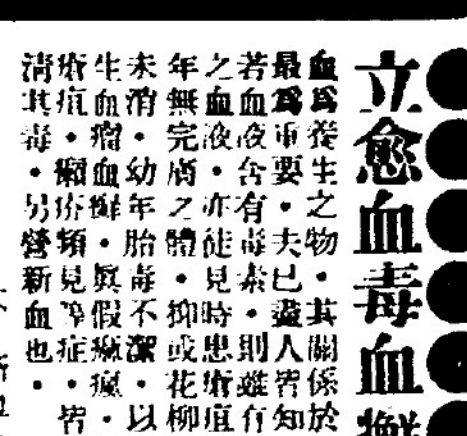 立愈血毒血癬
血爲養生之物・其關係於
最爲重要・夫已盡人皆知
若血液含有毒素・則雖有
之血液・亦能見時患瘡疽
年無完膚之體・抑或花柳
未消・幼年胎毒不潔・以
生血瘤血癬・眞假癲瘋・
瘡疽・癩疥類見等症・皆
淸其毒・另營新血也・